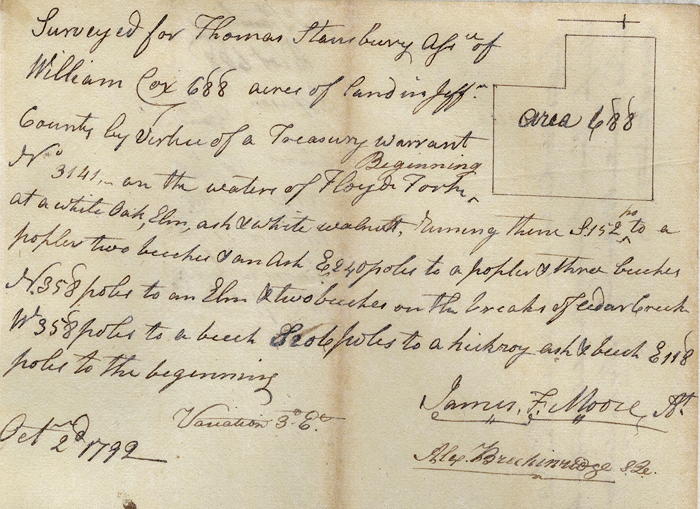 Surveyed for Thomas Stansbury Assee of
William Cox 688 acres of Land in Jeffn
County by Virtue of a Treasury warrant
No 3141,- on the waters of Floyds Forke Beginning
at a white Oak, Elm, ash & white walnutt, Running thence S152 po to a
popler two beeches & an Ash E240 poles to a popler & three beeches
N.358 poles to an Elm & two beeches on the breaks of cedar Creek
W358 poles to a beech S206 poles to a hickroy ash & beech E118
poles to the beginning
Variation 3° E.
Octr 2d 1792
James, F. Moore, At
Alex Breckinredge S.
area 688